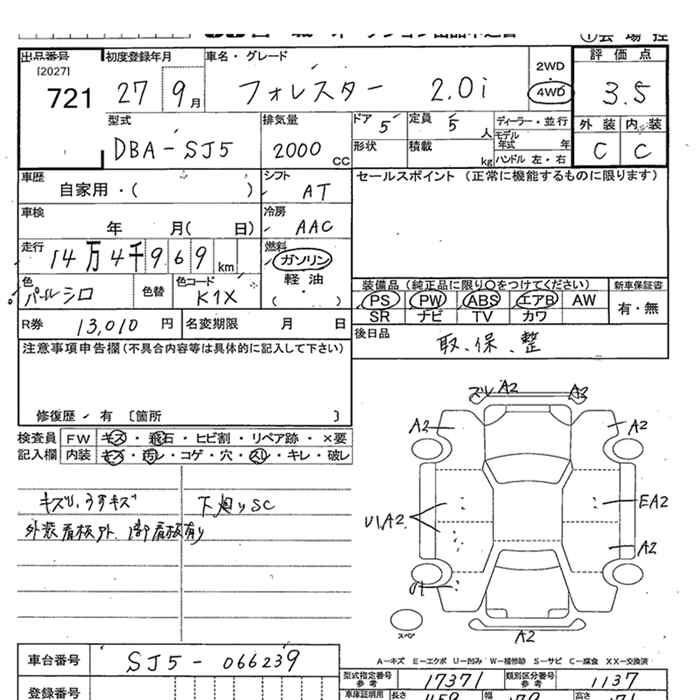 出品番号 初度登録年月 車名・グレード 評価点
[2027]
721 27 9月 フォレスター 2.0i 2WD 4WD 3.5
型式 排気量 ドア 5 定員 5人 ディーラー・並行 外装 内装
DBA-SJ5 2000cc 形状 積載 kg モデル年式 年 ハンドル 左・右 C C
車歴 シフト セールスポイント (正常に機能するものに限ります)
自家用・( ) AT
車検 冷房
年 月( 日) AAC
走行 燃料
14万4千969km ガソリン
軽油
色 色替 色コード 装備品(純正品に限り○をつけてください) 新車保証書
パールシロ K1X ・( ) PS PW ABS エアB AW 有・無
SR ナビ TV カワ
R券 13,010円 名変期限 月 日 後日品
取、保、整
注意事項申告欄(不具合内容等は具体的に記入して下さい)
修復歴 有 [箇所 ]
検査員 FW キズ・飛石・ヒビ割・リペア跡・×要
記入欄 内装 キズ・汚レ・コゲ・穴・スレ・キレ・破レ
キズU、うすキズ
下廻りSC
スレ A2 A2
A2 A2
UA2 EA2
A2
スペア A2
A-キズ E-エクボ U-凹み W-補修跡 S-サビ C-腐食 XX-交換済
車台番号 SJ5-066239
型式指定番号 参考 17371 類別区分番号 参考 1137
登録番号 車庫証明用 参考 長さ 幅 高さ